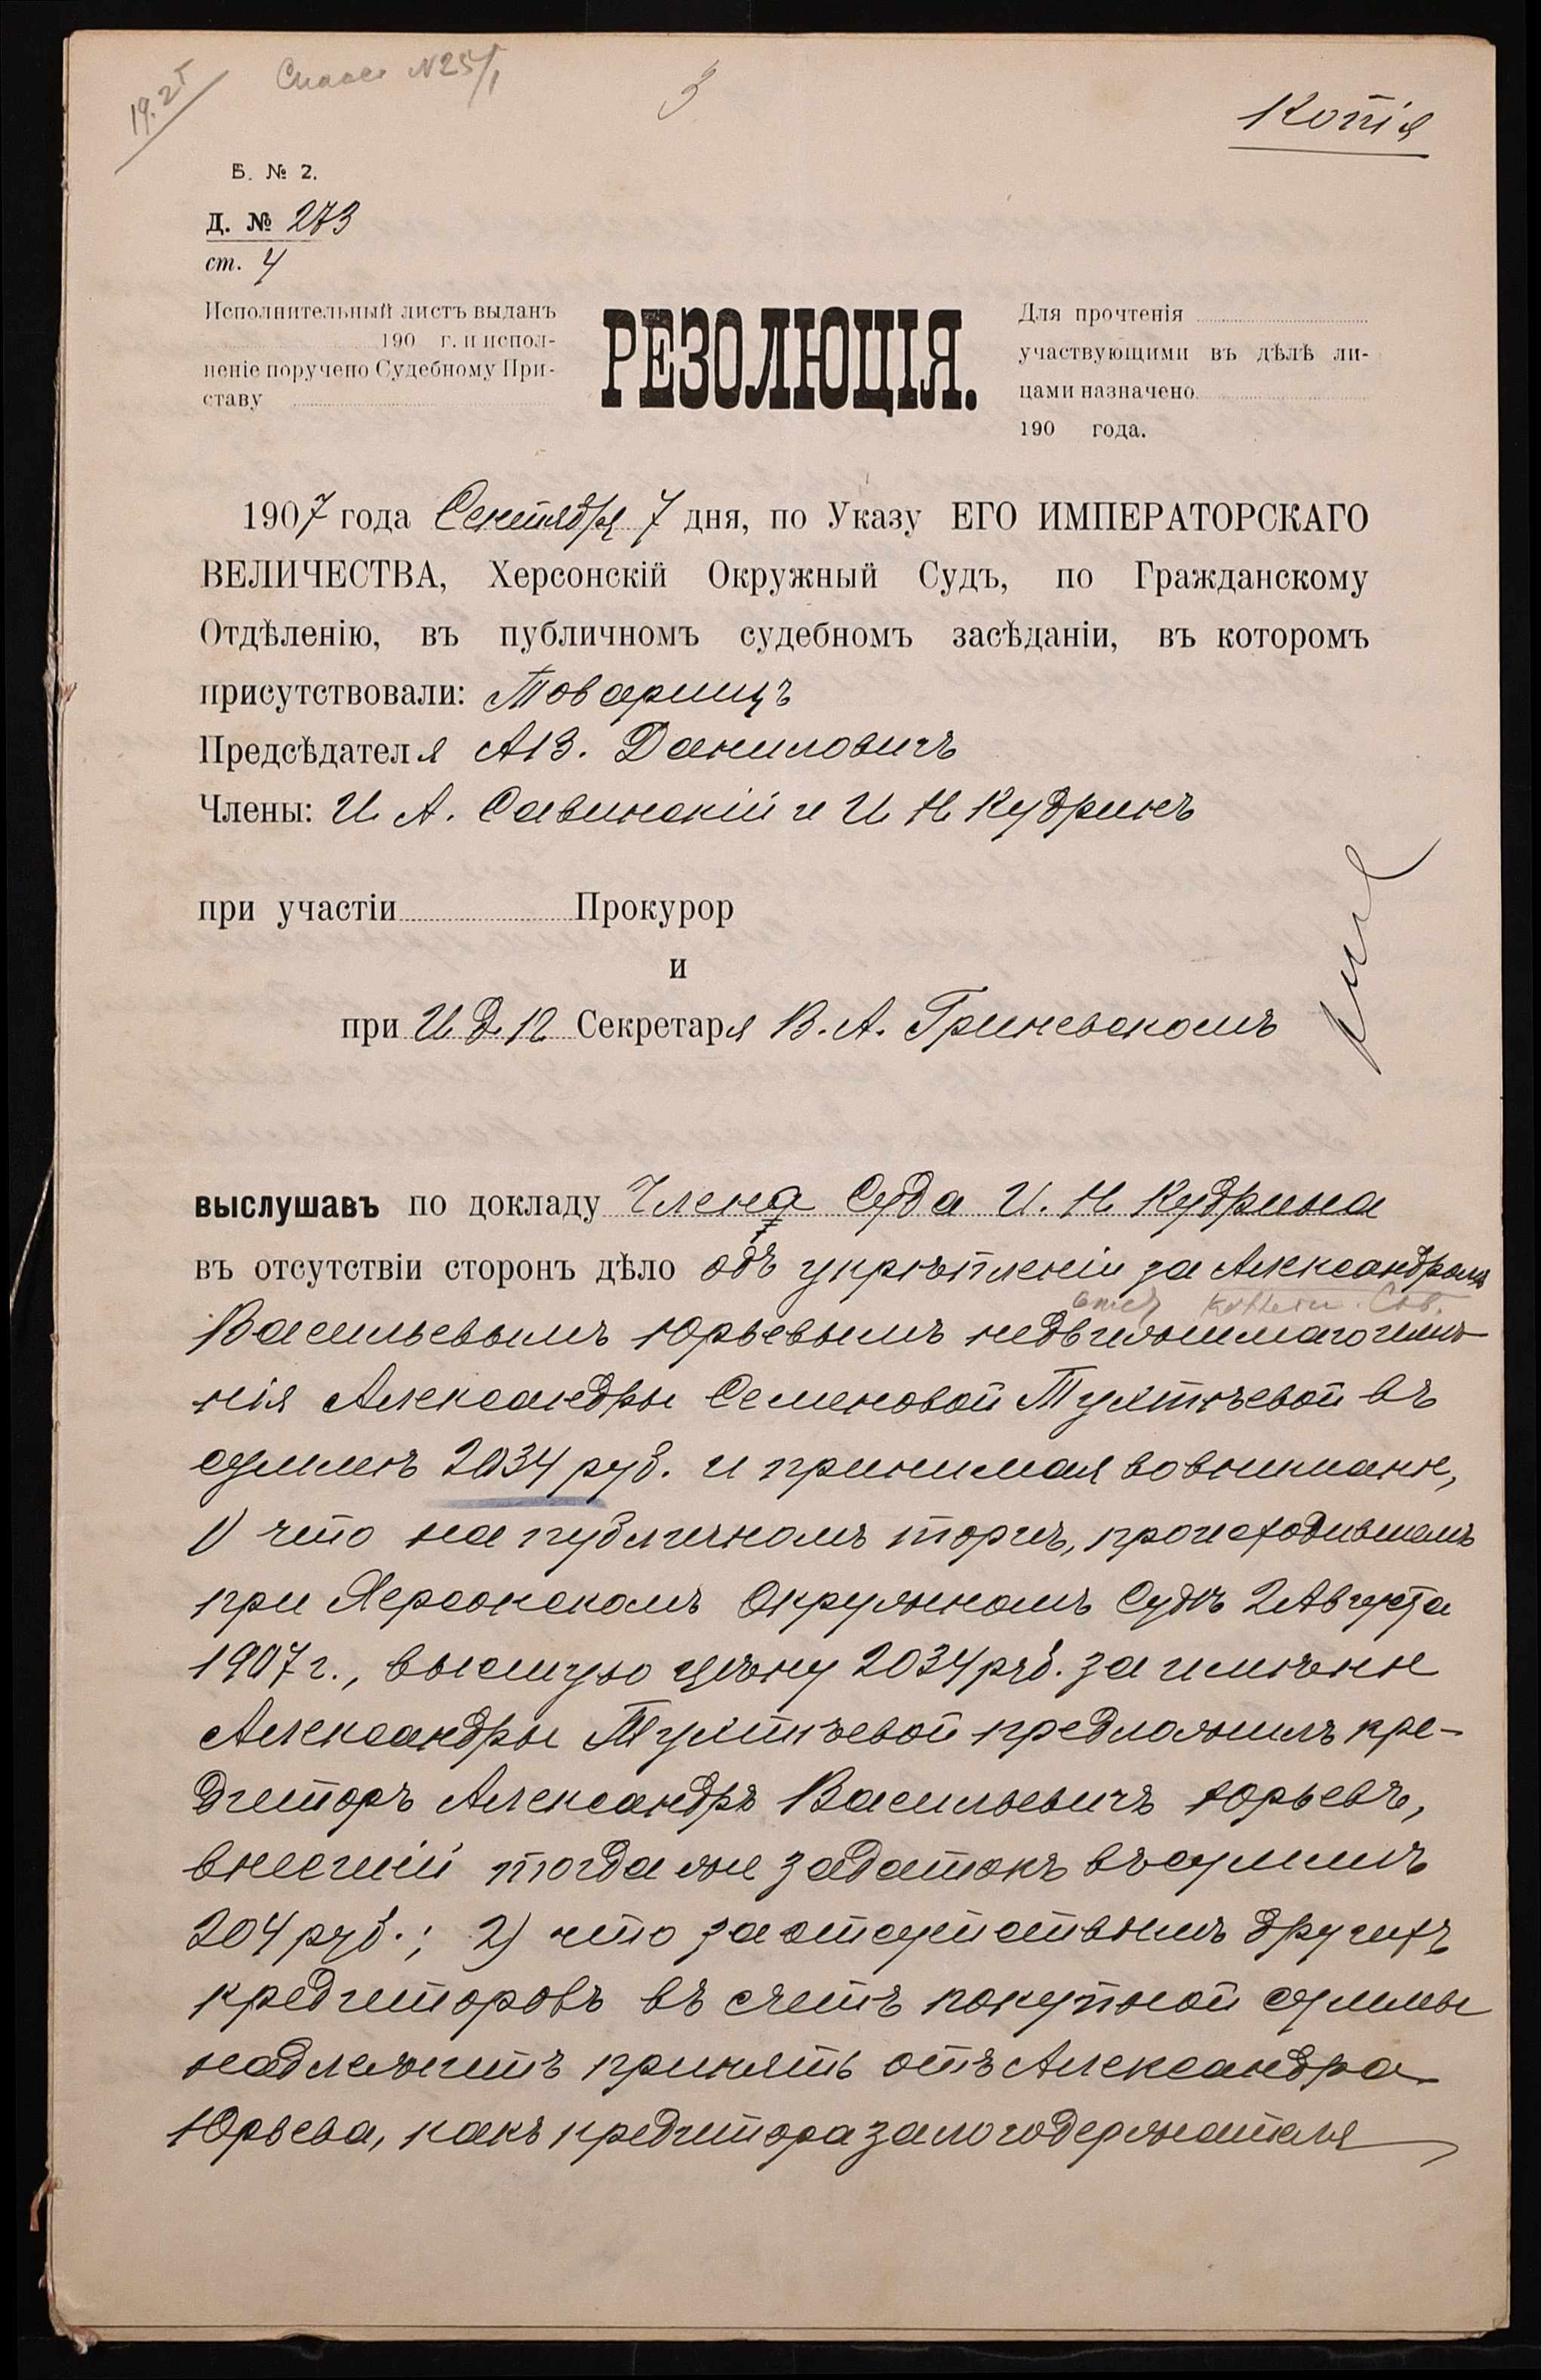 19.2
№ 25/1
3
Копія
Б. № 2.
Д. № 273
ст. 4
Исполнительный листъ выданъ
190 г. и испол-
неніе поручено Судебному При-
ставу
РЕЗОЛЮЦІЯ.
Для прочтенія
участвующими въ дѣлѣ ли-
цами назначено
190 года.
1907 года Сентября 7 дня, по Указу ЕГО ИМПЕРАТОРСКАГО
ВЕЛИЧЕСТВА, Херсонскій Окружный Судъ, по Гражданскому
Отдѣленію, въ публичномъ судебномъ засѣданіи, въ которомъ
присутствовали: Товарищъ
Предсѣдателя А.В. Даниловичъ
Члены: И. А. Савинскій и И Н Кудринъ
при участіи Прокурор
и
при И. д. П. Секретаря В. А. Гриневскомъ
выслушавъ по докладу Члена Суда И. Н. Кудрина
въ отсутствіи сторонъ дѣло объ укрѣпленіи за Александромъ
Васильевымъ Юрьевымъ недвижимаго имѣ-
нія Александры Семеновой Тухтѣевой въ
суммѣ 2034 руб. и принимая во вниманіе,
1) что на публичномъ торгѣ, происходившемъ
при Херсонскомъ Окружномъ Судѣ 2 Августа
1907 г., высшую цѣну 2034 руб. за имѣніе
Александры Тухтѣевой предложилъ кре-
диторъ Александръ Васильевичъ Юрьевъ,
внесшій тогда же задатокъ въ суммѣ
204 руб.; 2) что за отсутствіемъ другихъ
кредиторовъ въ счетъ покупной суммы
надлежитъ принять отъ Александра
Юрьева, какъ кредитора залогодержателя